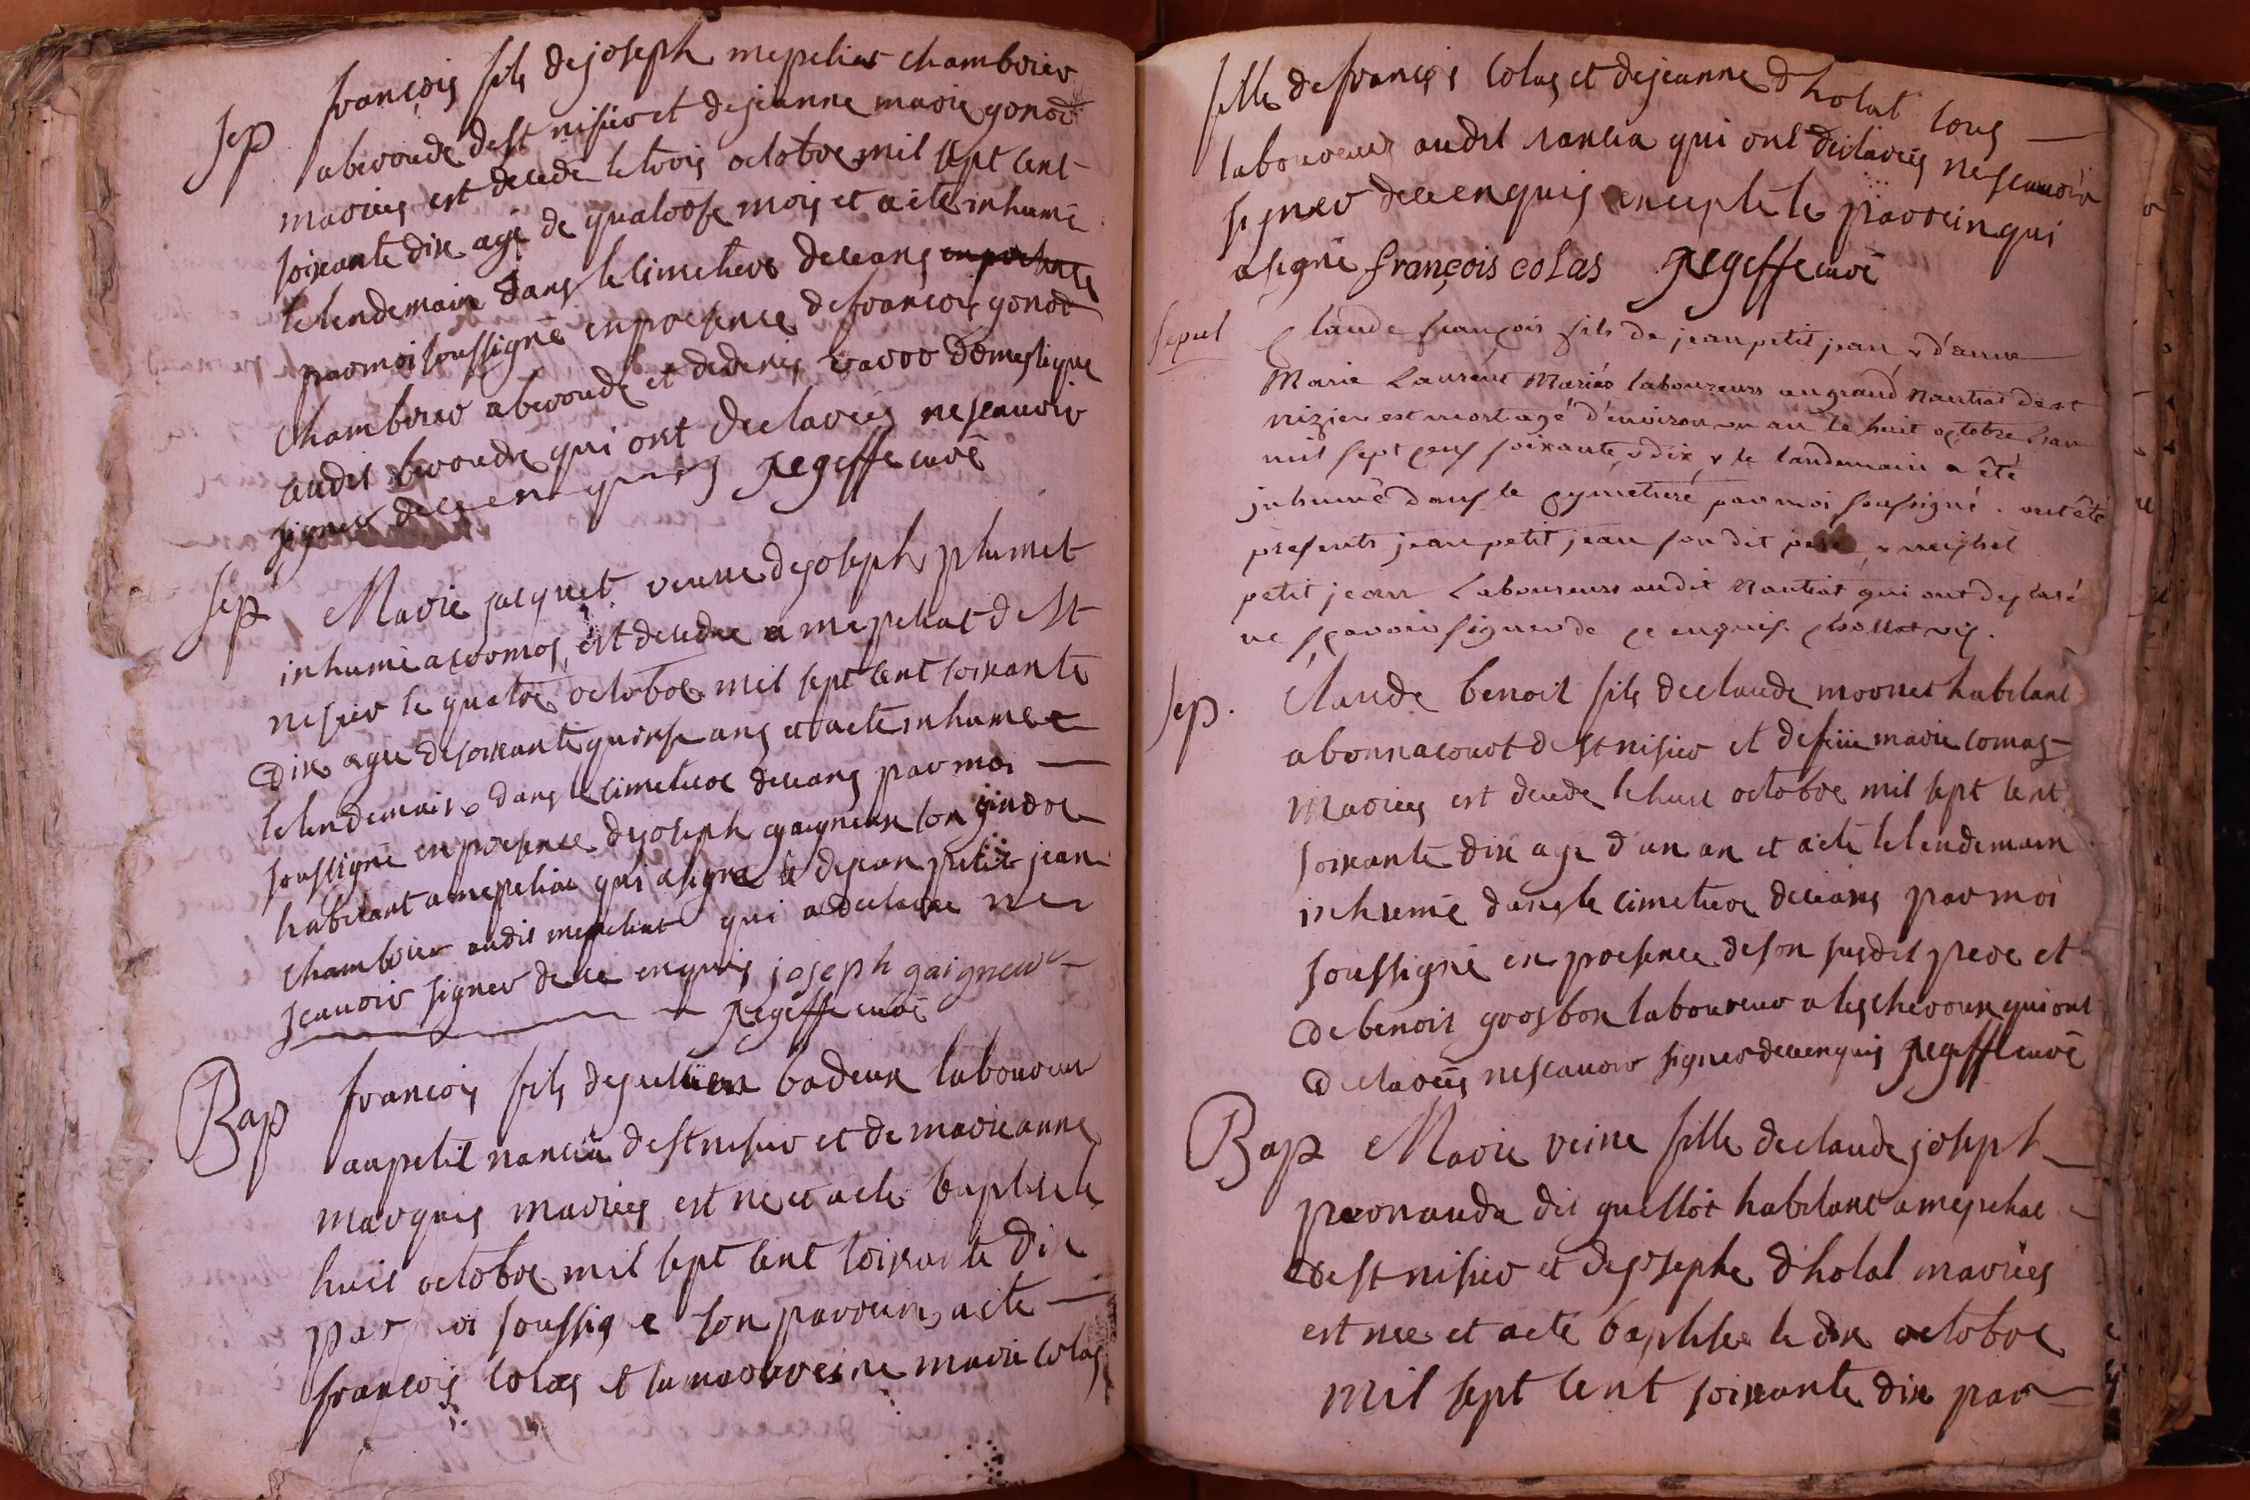 Sep françois fils de joseph mepeliat chambrier
a beroude de st nisier et de jeanne marie gonod
mariés est decede le trois octobre mil sept cent
soixante dix agé de quatorse mois et a ete inhumé
le lendemain dans le cimetiere de ceans en presence
par moi soussigné en presence de francois gonod
chambrier a beroude et de denis ravor domestique
audit beroude qui ont declarés ne scauoir
signer de ce enquis gegeffe curé
Sep Marie jacquet veuve de joseph plumet
inhumé a cormos est decedee a mepeliat de st
nesier le quatre octobre mil sept cent soixante
dix agée de soixante quinse ans et a ete inhumee
le lendemain dans le cimetiere de ceans par moi
soussigné en presence de joseph gaigneur son gindre
habitant a mepeliat qui a signe et de jean petit jean
chambrier audit mepeliat qui a declare ne
scauoir signer de ce enquis joseph gaigneur
gegeffe curé
Bap francois fils de julien badeux laboureur
au petit nancia de st nesier et de marie anne
marquis mariés est ne et a ete baptisé le
huit octobre mil sept cent soixante dix
par moi soussigne son parrein a ete
françois colas et sa marreine marie colas
fille de françois colas et de jeanne d'holat tous
laboureurs audit nancia qui ont declarés ne scauoir
signer de ce enquis excepte le parrein qui
a signé françois colas gegeffe curé
Sepul Claude françois fils de jean petit jean & d'anne
Marie Laurent Mariés laboureurs au grand Nantiat de st
nizier est mort agé d'environ un an le huit octobre l'an
mil sept cens soixante & dix & le landemain a été
inhumé dans le cymetiere par moi soussigné. ont été
présents jean petit jean son dit pere, &
petit jean Laboureurs audit Nantiat qui ont declaré
ne sçavoir signer de ce enquis.
Sep. Claude benoit fils de claude mornet habitant
a bonnacourt de st nisier et de feüe marie comas
Mariés est decede le huit octobre mil sept cent
soixante dix age d'un an et a ete le lendemain
inhumé dans le cimetiere de ceans par moi
soussigné en presence de son susdit pere et
de benoit grosbon laboureur a les cheroux qui ont
declarés ne scauoir signer de ce enquis gegeffe curé
Bap Marie reine fille de claude joseph
peronauda dit guillot habitant a mepeliat
de st nisier et de josephe d'holat mariés
est nee et a ete baptisee le dix octobre
mil sept cent soixante dix par